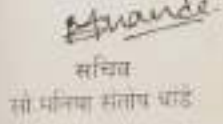 सचिव
सौ. मनिषा संतोष धाडे